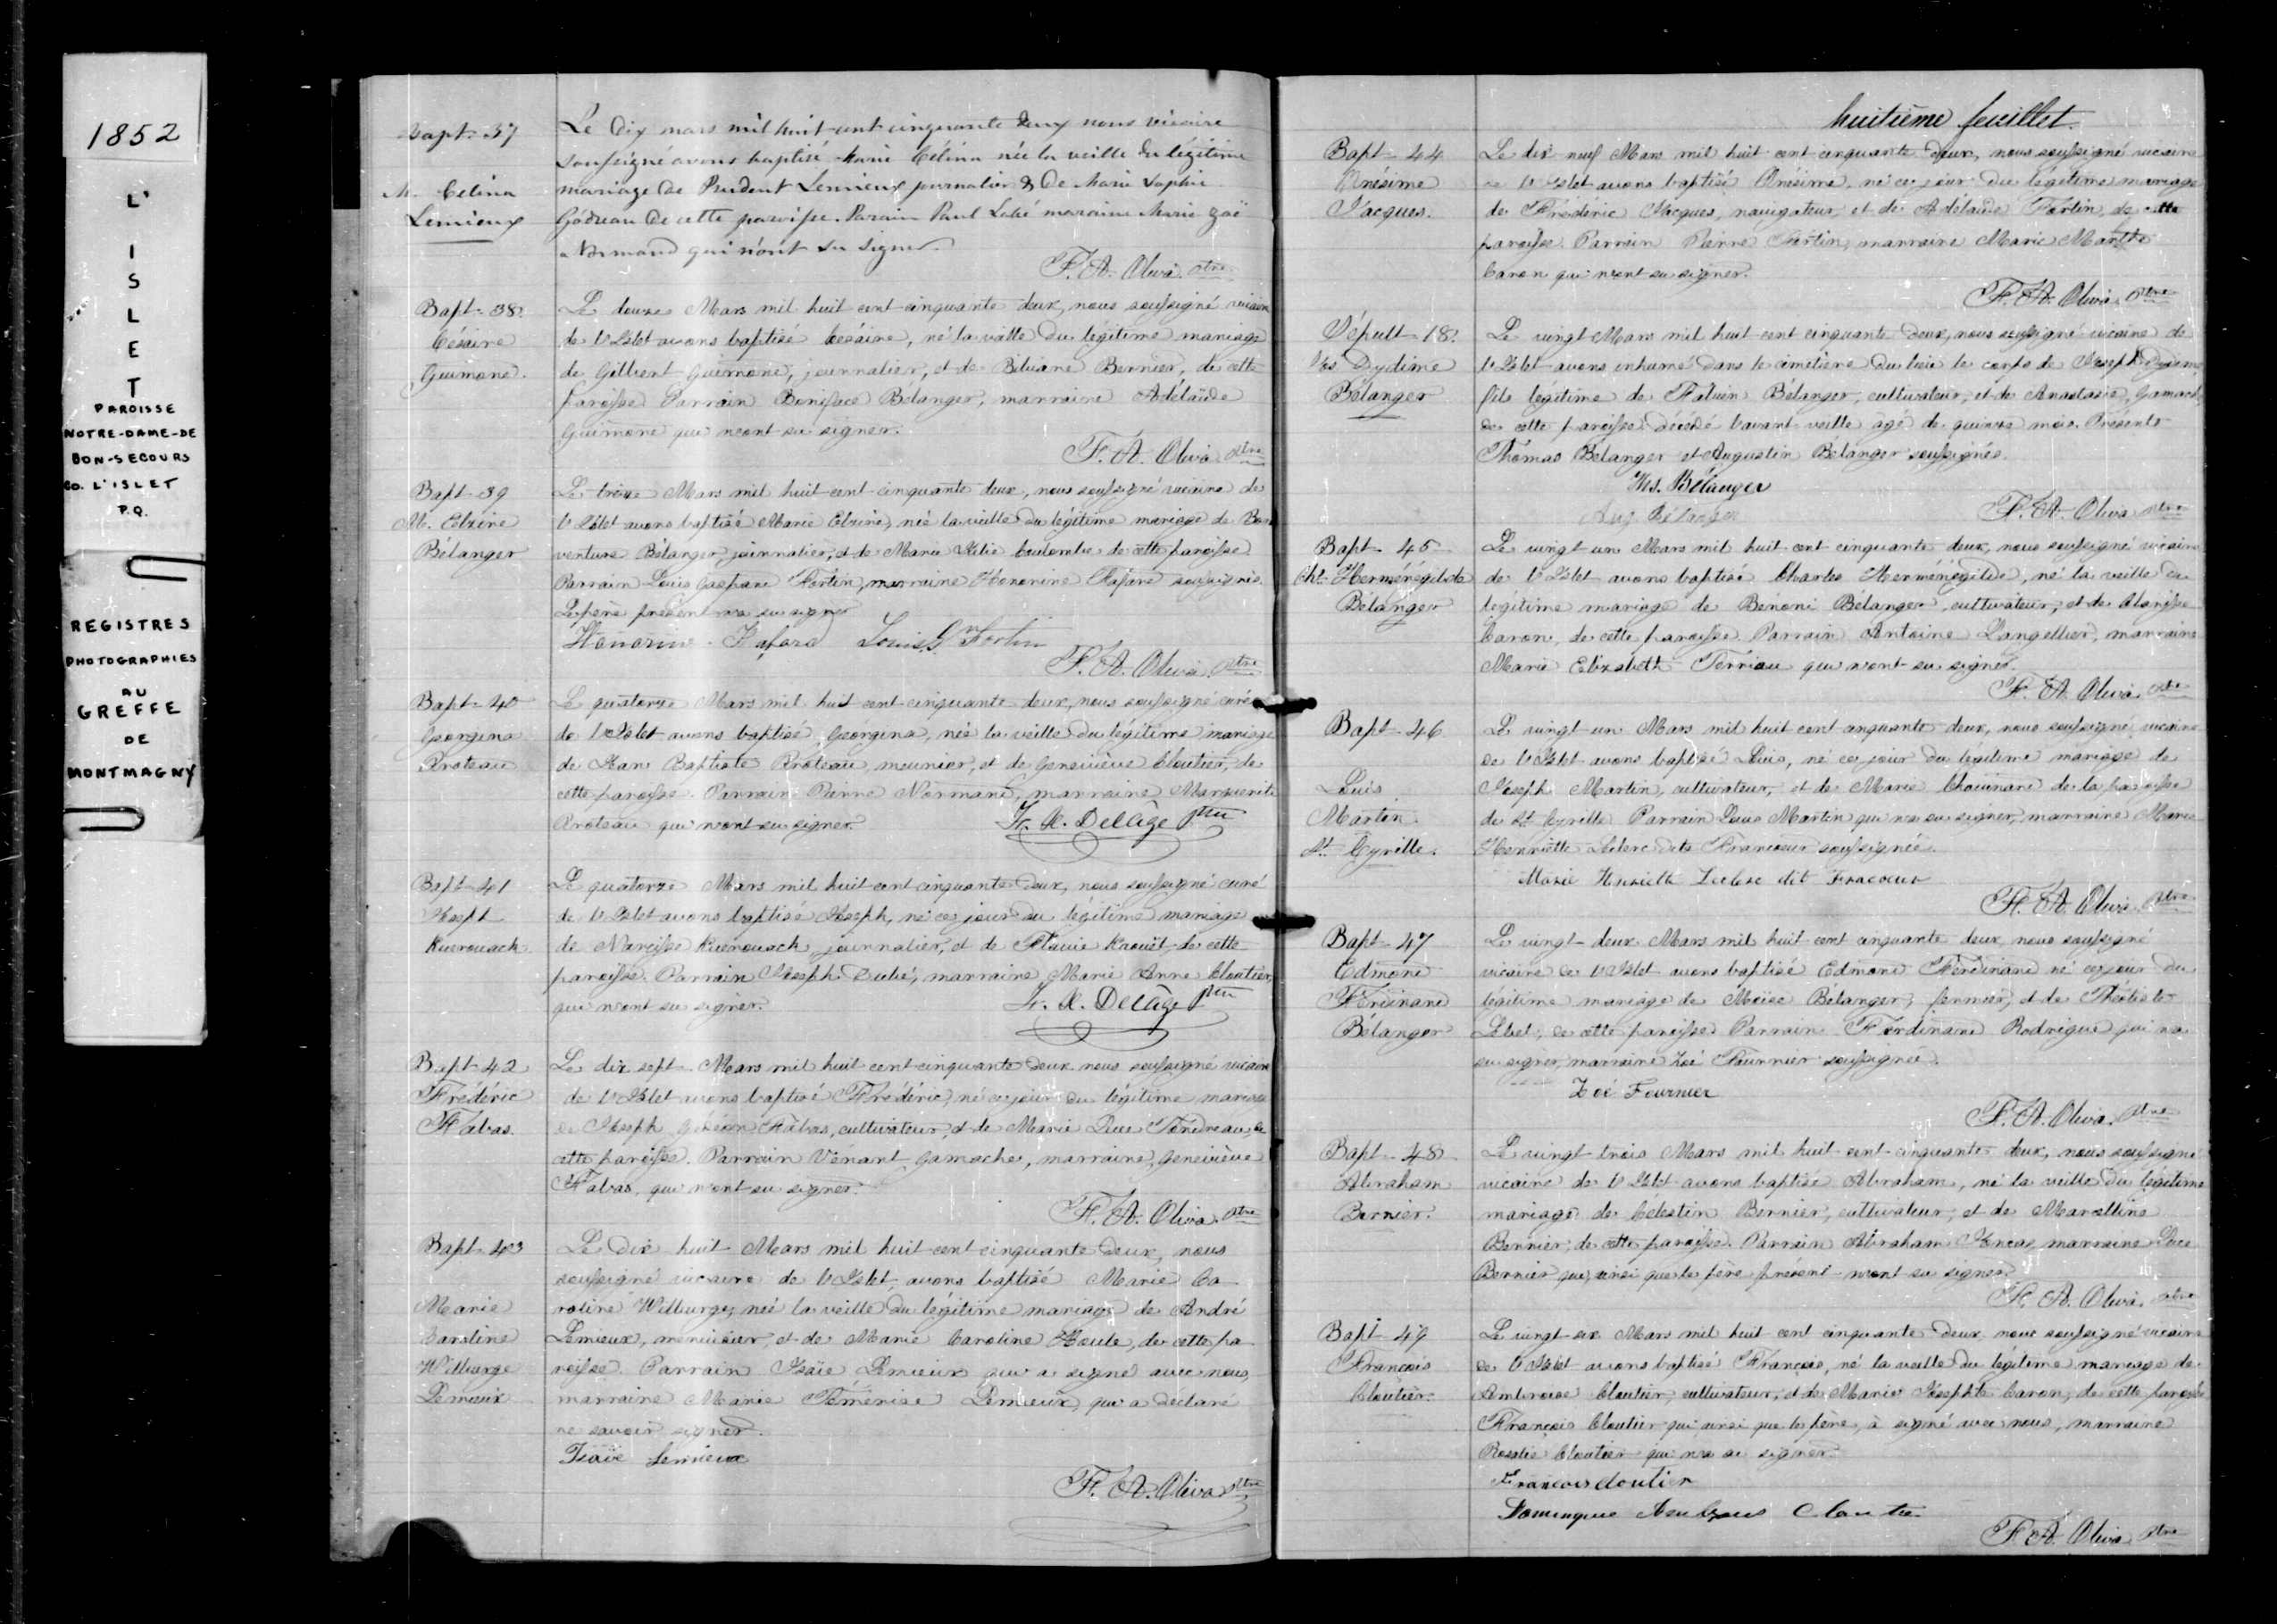 1852
L'
I
S
L
E
T
PAROISSE
NOTRE-DAME-DE
BON-SECOURS
CO. L'ISLET
P.Q.
REGISTRES
PHOTOGRAPHIES
AU
GREFFE
DE
MONTMAGNY
Bapt. 37
M. Celina
Lemieux
Le dix mars mil huit cent cinquante deux nous vicaire
soussigné avons baptisé Marie Célina née la veille du légitime
mariage de Prudent Lemieux journalier & de Marie Sophie
Godreau de cette paroisse. Parain Paul Labé maraine Marie Zoé
Normand qui n'ont su signer
F. A. Oliva Ptre
Bapt. 38.
Césaire
Guimond.
Le douze Mars mil huit cent cinquante deux, nous soussigné vicaire
de l'Islet avons baptisé Césaire, né la veille du légitime mariage
de Gilbert Guimond, journalier, et de Bibiane Bernier, de cette
paroisse Parrain Boniface Bélanger, marraine Adélaïde
Guimond qui n'ont su signer.
F. A. Oliva Ptre
Bapt. 39
M. Elzire
Bélanger
Le treize Mars mil huit cent cinquante deux, nous soussigné vicaire de
l'Islet avons baptisé Marie Elzire, née la veille du légitime mariage de Bon
venture Bélanger, journalier, et de Marie Julie Coulombe de cette paroisse
Parrain Louis Gaspard Fortin, marraine Honorine Fafard soussignés.
Le père présent n'a su signer
Honorine Fafard Louis G. Fortin
F. A. Oliva Ptre
Bapt. 40
Georgina
Proteau
Le quatorze Mars mil huit cent cinquante deux, nous soussigné curé
de l'Islet avons baptisé Georgina, née la veille du légitime mariage
de Jean Baptiste Proteau, meunier, et de Geneviève Cloutier, de
cette paroisse. Parrain Pierre Normand, marraine Marguerite
Proteau qui n'ont su signer.
F. X. Delâge Ptre
Bapt. 41
Joseph
Kuerouack
Le quatorze Mars mil huit cent cinquante deux, nous soussigné curé
de l'Islet avons baptisé Joseph, né ce jour du légitime mariage
de Narcisse Kuerouack, journalier, et de Flavie Krouët de cette
paroisse. Parrain Joseph Dubé, marraine Marie Anne Cloutier,
qui n'ont su signer.
F. X. Delâge Ptre
Bapt. 42
Frédéric
Fabas.
Le dix sept Mars mil huit cent cinquante deux nous soussigné vicaire
de l'Islet avons baptisé Frédéric, né ce jour du légitime mariage
de Joseph Gédéon Fabas, cultivateur, et de Marie Luce Tondreau, de
cette paroisse. Parrain Venant Gamache, marraine, Geneviève
Fabas, qui n'ont su signer.
F. A. Oliva Ptre
Bapt. 43
Marie
Caroline
Wilburge
Lemieux
Le dix huit Mars mil huit cent cinquante deux, nous
soussigné vicaire de l'Islet, avons baptisé Marie Ca
roline Wilburge, née la veille du légitime mariage de André
Lemieux, menuisier, et de Marie Caroline Houle, de cette pa
roisse. Parrain Isaïe Lemieux qui a signé avec nous,
marraine Marie Démérise Lemieux, qui a déclaré
ne savoir signer.
Isaïe Lemieux
F. A. Oliva Ptre
huitième feuillet.
Bapt. 44
Onésime
Jacques.
Le dix neuf Mars mil huit cent cinquante deux, nous soussigné vicaire
de l'Islet avons baptisé Onésime, né ce jour du légitime mariage
de Frédéric Jacques, navigateur, et de Adélaïde Fortin, de cette
paroisse. Parrain Pierre Fortin, marraine Marie Marthe
Caron qui n'ont su signer.
F. A. Oliva Ptre
Sépult. 18.
Jos Dydime
Bélanger
Le vingt Mars mil huit cent cinquante deux, nous soussigné vicaire de
l'Islet avons inhumé dans le cimetière du lieu le corps de Joseph Dydime
fils légitime de Fabien Bélanger, cultivateur, et de Anastasie Gamache
de cette paroisse décédé l'avant-veille âgé de quinze mois. Présents
Thomas Bélanger et Augustin Bélanger soussignés.
Ths. Bélanger
Aug. Bélanger
F. A. Oliva Ptre
Bapt. 45
Chs Herménégilde
Bélanger
Le vingt un Mars mil huit cent cinquante deux, nous soussigné vicaire
de l'Islet avons baptisé Charles Herménégilde, né la veille du
légitime mariage de Bénoni Bélanger, cultivateur, et de Clarisse
Caron, de cette paroisse. Parrain Antoine Langellier, marraine
Marie Elizabeth Terriau qui n'ont su signer.
F. A. Oliva Ptre
Bapt. 46
Louis
Martin
St. Cyrille.
Le vingt un Mars mil huit cent cinquante deux, nous soussigné vicaire
de l'Islet avons baptisé Louis, né ce jour du légitime mariage de
Joseph Martin, cultivateur, et de Marie Chouinard de la paroisse
de St Cyrille. Parrain Louis Martin qui n'a su signer, marraine Marie
Henriette Leclerc dite Francoeur soussignée.
Marie Henriette Leclerc dit Fracoeur
F. A. Oliva Ptre
Bapt. 47
Edmond
Ferdinand
Bélanger
Le vingt-deux Mars mil huit cent cinquante deux, nous soussigné
vicaire de l'Islet avons baptisé Edmond Ferdinand né ce jour du
légitime mariage de Moïse Bélanger, fermier, et de Théotiste
Lebel, de cette paroisse. Parrain Ferdinand Rodrigue qui n'a
su signer, marraine Zoé Fournier soussignée.
Zoé Fournier
F. A. Oliva Ptre
Bapt. 48
Abraham
Bernier.
Le vingt trois Mars mil huit cent cinquante deux, nous soussigné
vicaire de l'Islet avons baptisé Abraham, né la veille du légitime
mariage de Célestin Bernier, cultivateur, et de Marcelline
Bernier, de cette paroisse. Parrain Abraham Joncas, marraine Luce
Bernier qui, ainsi que le père présent n'ont su signer.
F. A. Oliva Ptre
Bapt. 49
François
Cloutier.
Le vingt six Mars mil huit cent cinquante deux nous soussigné vicaire
de l'Islet avons baptisé François, né la veille du légitime mariage de
Ambroise Cloutier, cultivateur, et de Marie Josephte Caron, de cette paroisse
François Cloutier qui ainsi que le père, a signé avec nous, marraine
Rosalie Cloutier qui n'a su signer.
François cloutier
Dominique Cloutier
F. A. Oliva Ptre